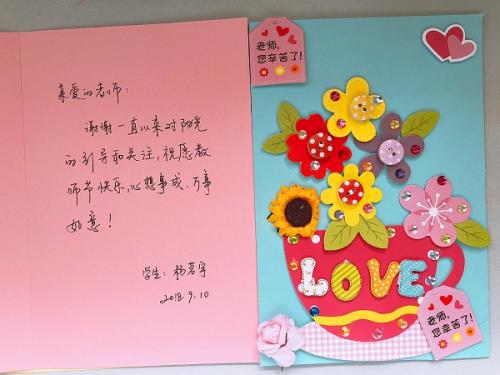 亲爱的老师:
谢谢一直以来对阳光
的引导和关注,祝愿教
师节快乐,心想事成、万事
如意!
学生:杨茗宇
2018.9.10
老师,
您辛苦了!
LOVE
老师,
您辛苦了!